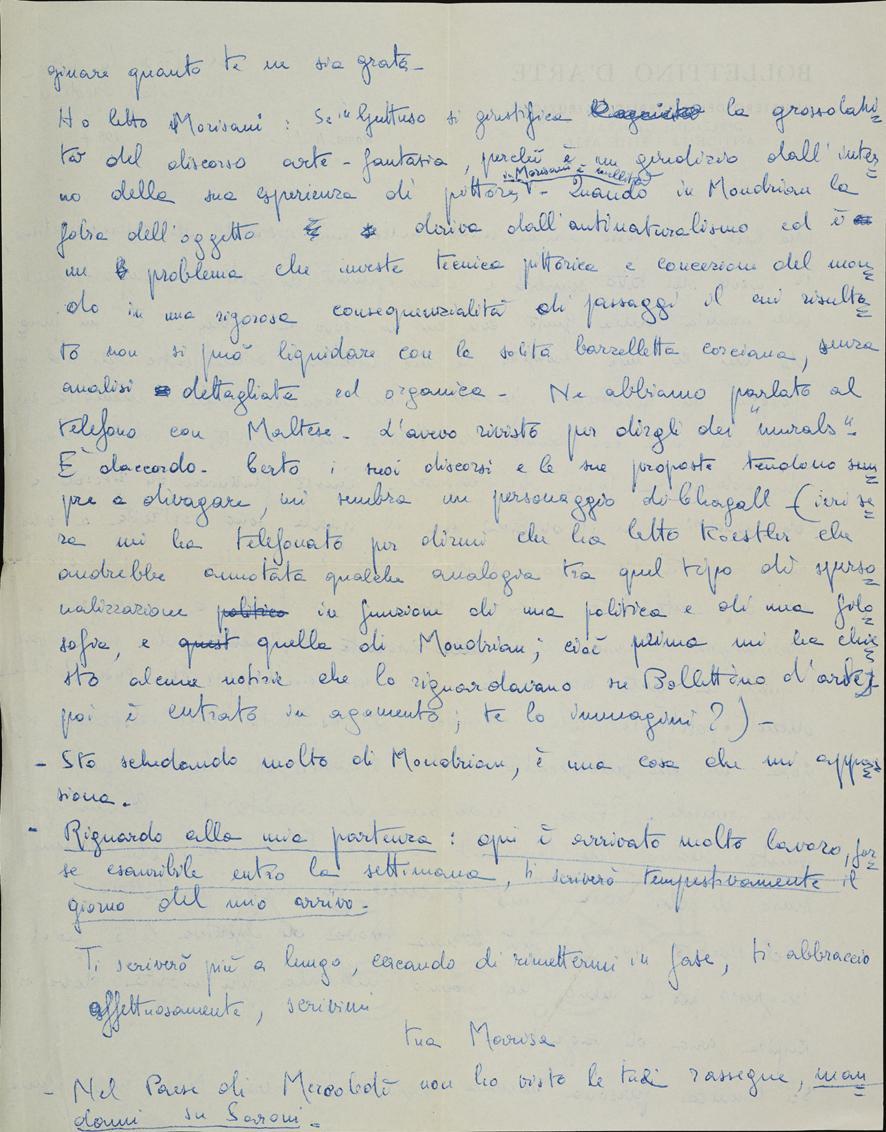 ginare quanto te ne sia grata -
Ho letto Morisani : Se in Guttuso si giustifica la grossolani=
tà del discorso arte - fantasia, perché è un giudizio dall'inter=
in Morisani è nullità
no della sua esperienza di pittore, - Quando in Mondrian la
fobia dell'oggetto deriva dall'antinaturalismo ed è
un problema che investe tecnica pittorica e concezione del mon=
do in una rigorosa consequenzialità di passaggi il cui risulta=
to non si può liquidare con la solita barzelletta crociana, senza
analisi dettagliata ed organica - Ne abbiamo parlato al
telefono con Maltese - L'avevo rivisto per dirgli dei "murals" -
E' daccordo - Certo i suoi discorsi e le sue proposte tendono sem=
pre a divagare, mi sembra un personaggio di Chagall - (ieri se=
ra mi ha telefonato per dirmi che ha letto Koestler che
andrebbe annotata qualche analogia tra quel tipo di sperso=
nalizzazione politico in funzione di una politica e di una filo=
sofia, e quest quella di Mondrian; cioè prima mi ha chie=
sto alcune notizie che lo riguardavano su Bollettino d'arte,
poi è entrato in agomento; te lo immagini?) -
- Sto schedando molto di Mondrian, è una cosa che mi appas=
siona.
- Riguardo alla mia partenza : qui è arrivato molto lavoro, for=
se esauribile entro la settimana, ti scriverò tempestivamente il
giorno del mio arrivo -
Ti scriverò più a lungo, cercando di rimettermi in fase, ti abbraccio
affettuosamente, scrivimi
tua Marisa
- Nel Paese di Mercoledì non ho visto le tue rassegne, man=
dami su Saroni -